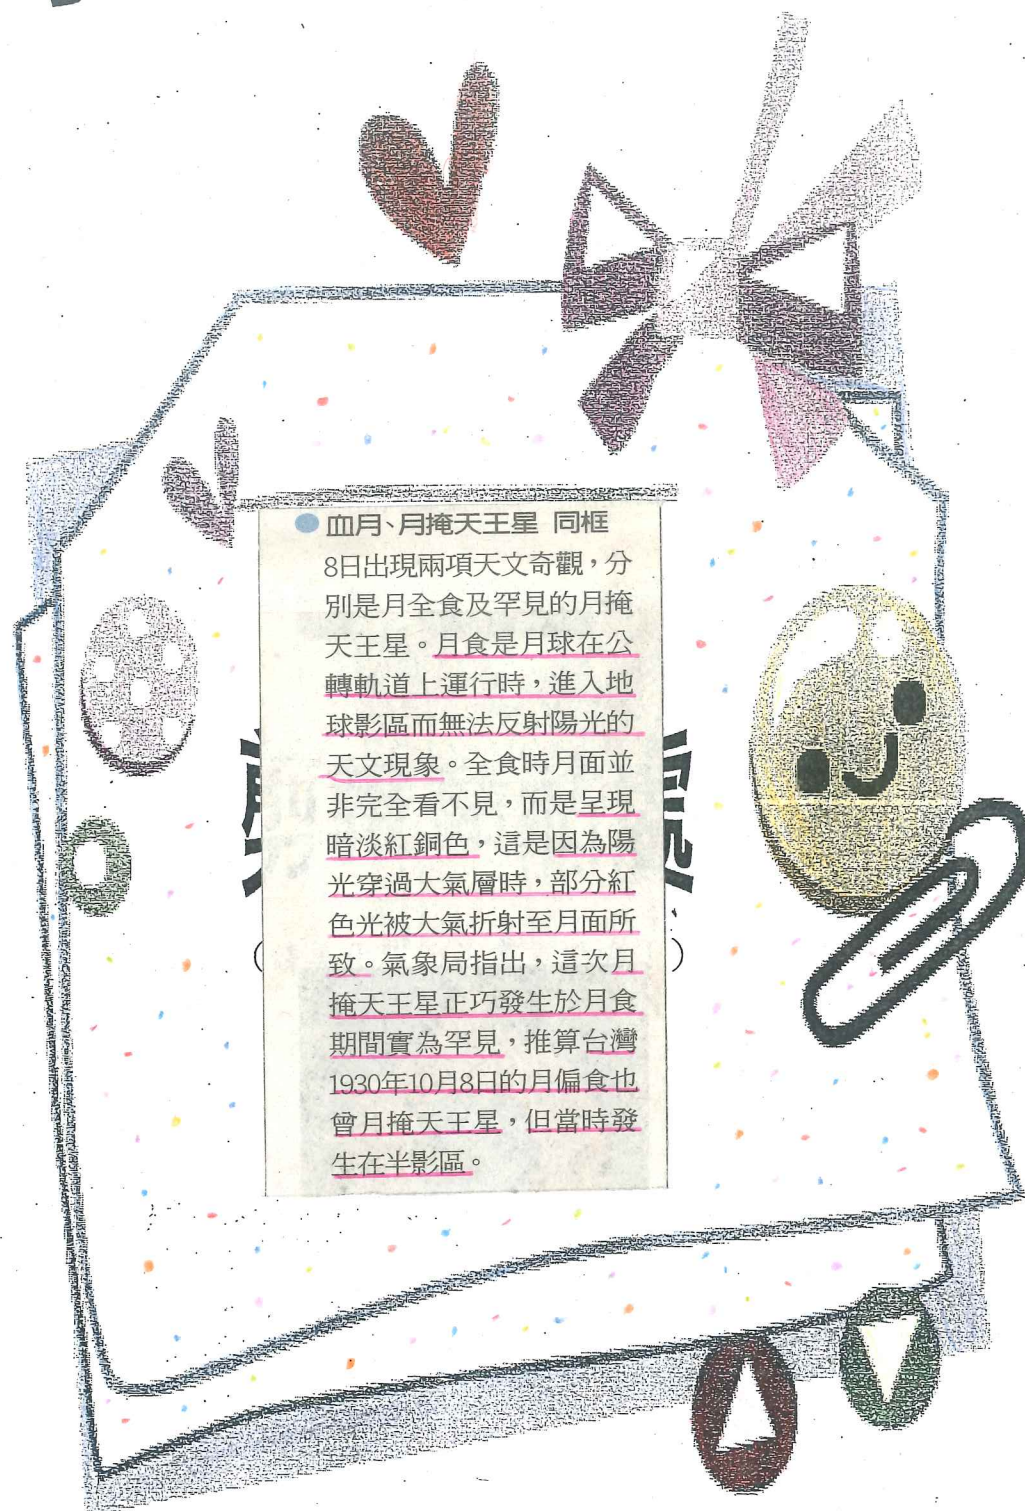 血月、月掩天王星 同框
8日出現兩項天文奇觀，分
別是月全食及罕見的月掩
天王星。月食是月球在公
轉軌道上運行時，進入地
球影區而無法反射陽光的
天文現象。全食時月面並
非完全看不見，而是呈現
暗淡紅銅色，這是因為陽
光穿過大氣層時，部分紅
色光被大氣折射至月面所
致。氣象局指出，這次月
掩天王星正巧發生於月食
期間實為罕見，推算台灣
1930年10月8日的月偏食也
曾月掩天王星，但當時發
生在半影區。